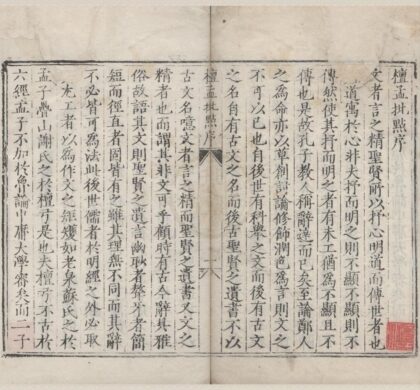 檀孟批點序
文者言之精聖賢所以抒心明道而傳世者也
道寓於心非夫抒而明之則不顯不顯則不
傳然使其抒而明之者有未工猶為不顯且不
傳也是故孔子教人稱辭達而已矣至論鄭人
之為命亦以草創討論修飾潤色為言則文之
不可以已也自後世有科舉之文而後有古文
之名自有古文之名而後古聖賢之遺書不以
檀孟批點序 一
古文名噫文者言之精而聖賢之遺書又文之
精者也而謂其非文可乎顧時有古今辭其雅
俗故語其文則聖賢之遺言幽眇者聱牙者簡
短而徑直者固皆有之雖其理無不同而其辭
不必皆可為法此後世儒者於明經之外必取
尤工者以為作文之經矱如老泉蘇氏之於
孟子疊山謝氏之於檀弓是也夫檀弓不古於
六經孟子不加於魯論中庸大學審矣而二子